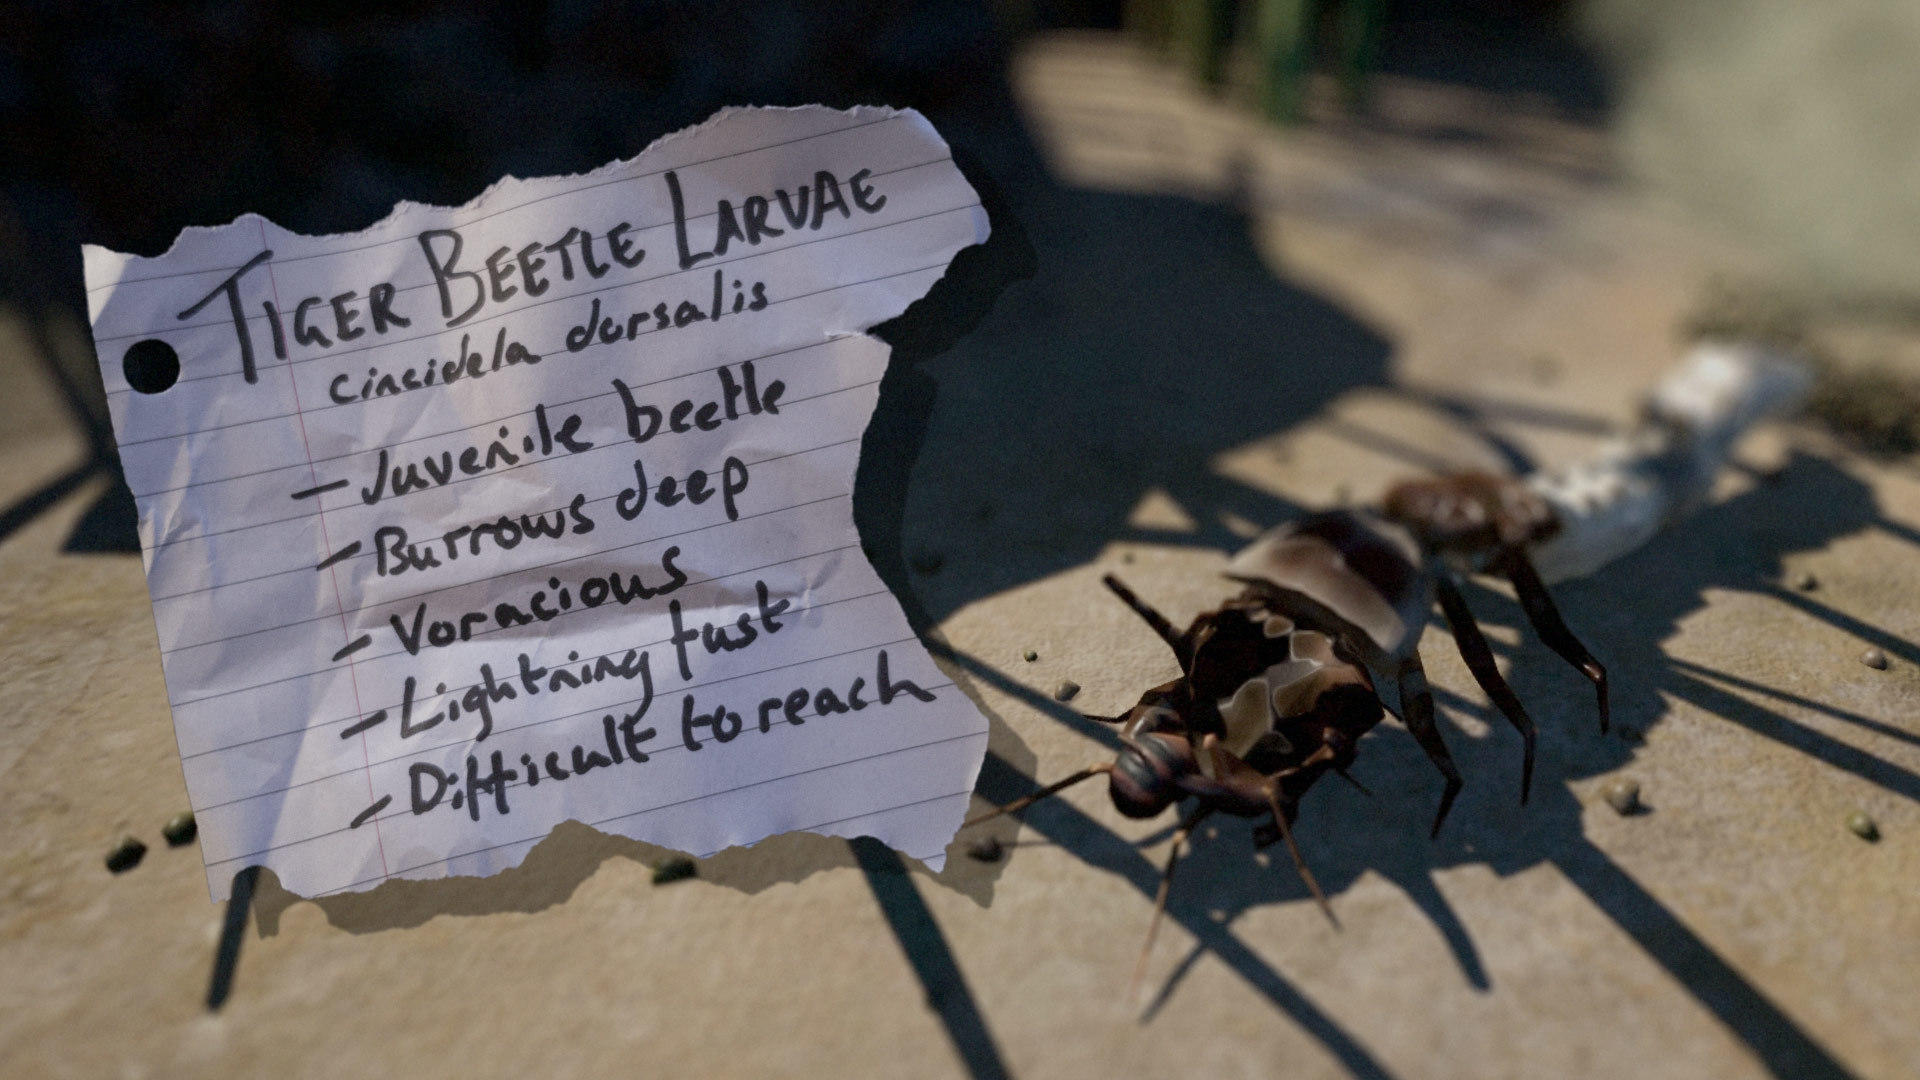 TIGER BEETLE LARVAE
cincidela dorsalis
- Juvenile beetle
- Burrows deep
- Voracious
- Lightning fast
- Difficult to reach